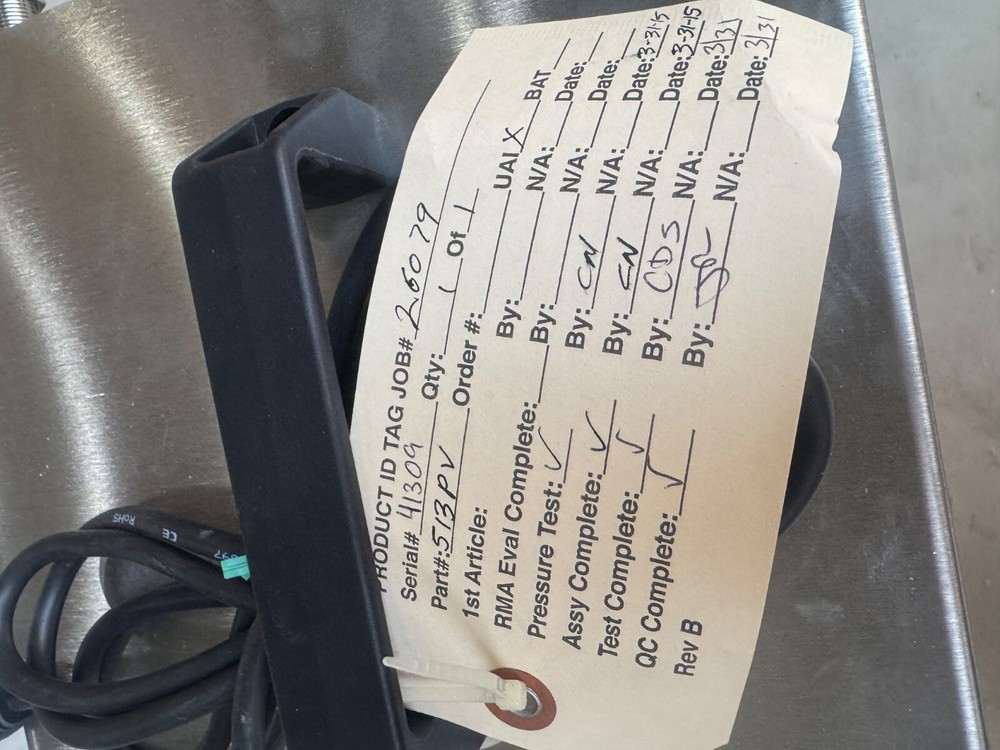 PRODUCT ID TAG JOB# 26079
Serial# 41309 Qty: 1 Of 1
Part#: 513PV Order #:
1st Article: UAI X BAT
RMA Eval Complete: By: N/A: Date:
Pressure Test: ✓ By: N/A: Date:
Assy Complete: ✓ By: CN N/A: Date: 3-31-15
Test Complete: ✓ By: CN N/A: Date: 3-31-15
QC Complete: ✓ By: CDS N/A: Date: 3/31
Rev B By: N/A: Date: 3/31
RoHS
CE